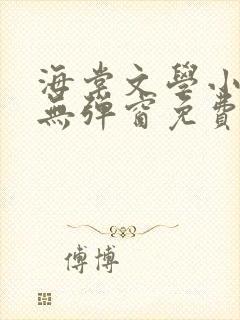 海棠文學小
無彈窗免費
傅博